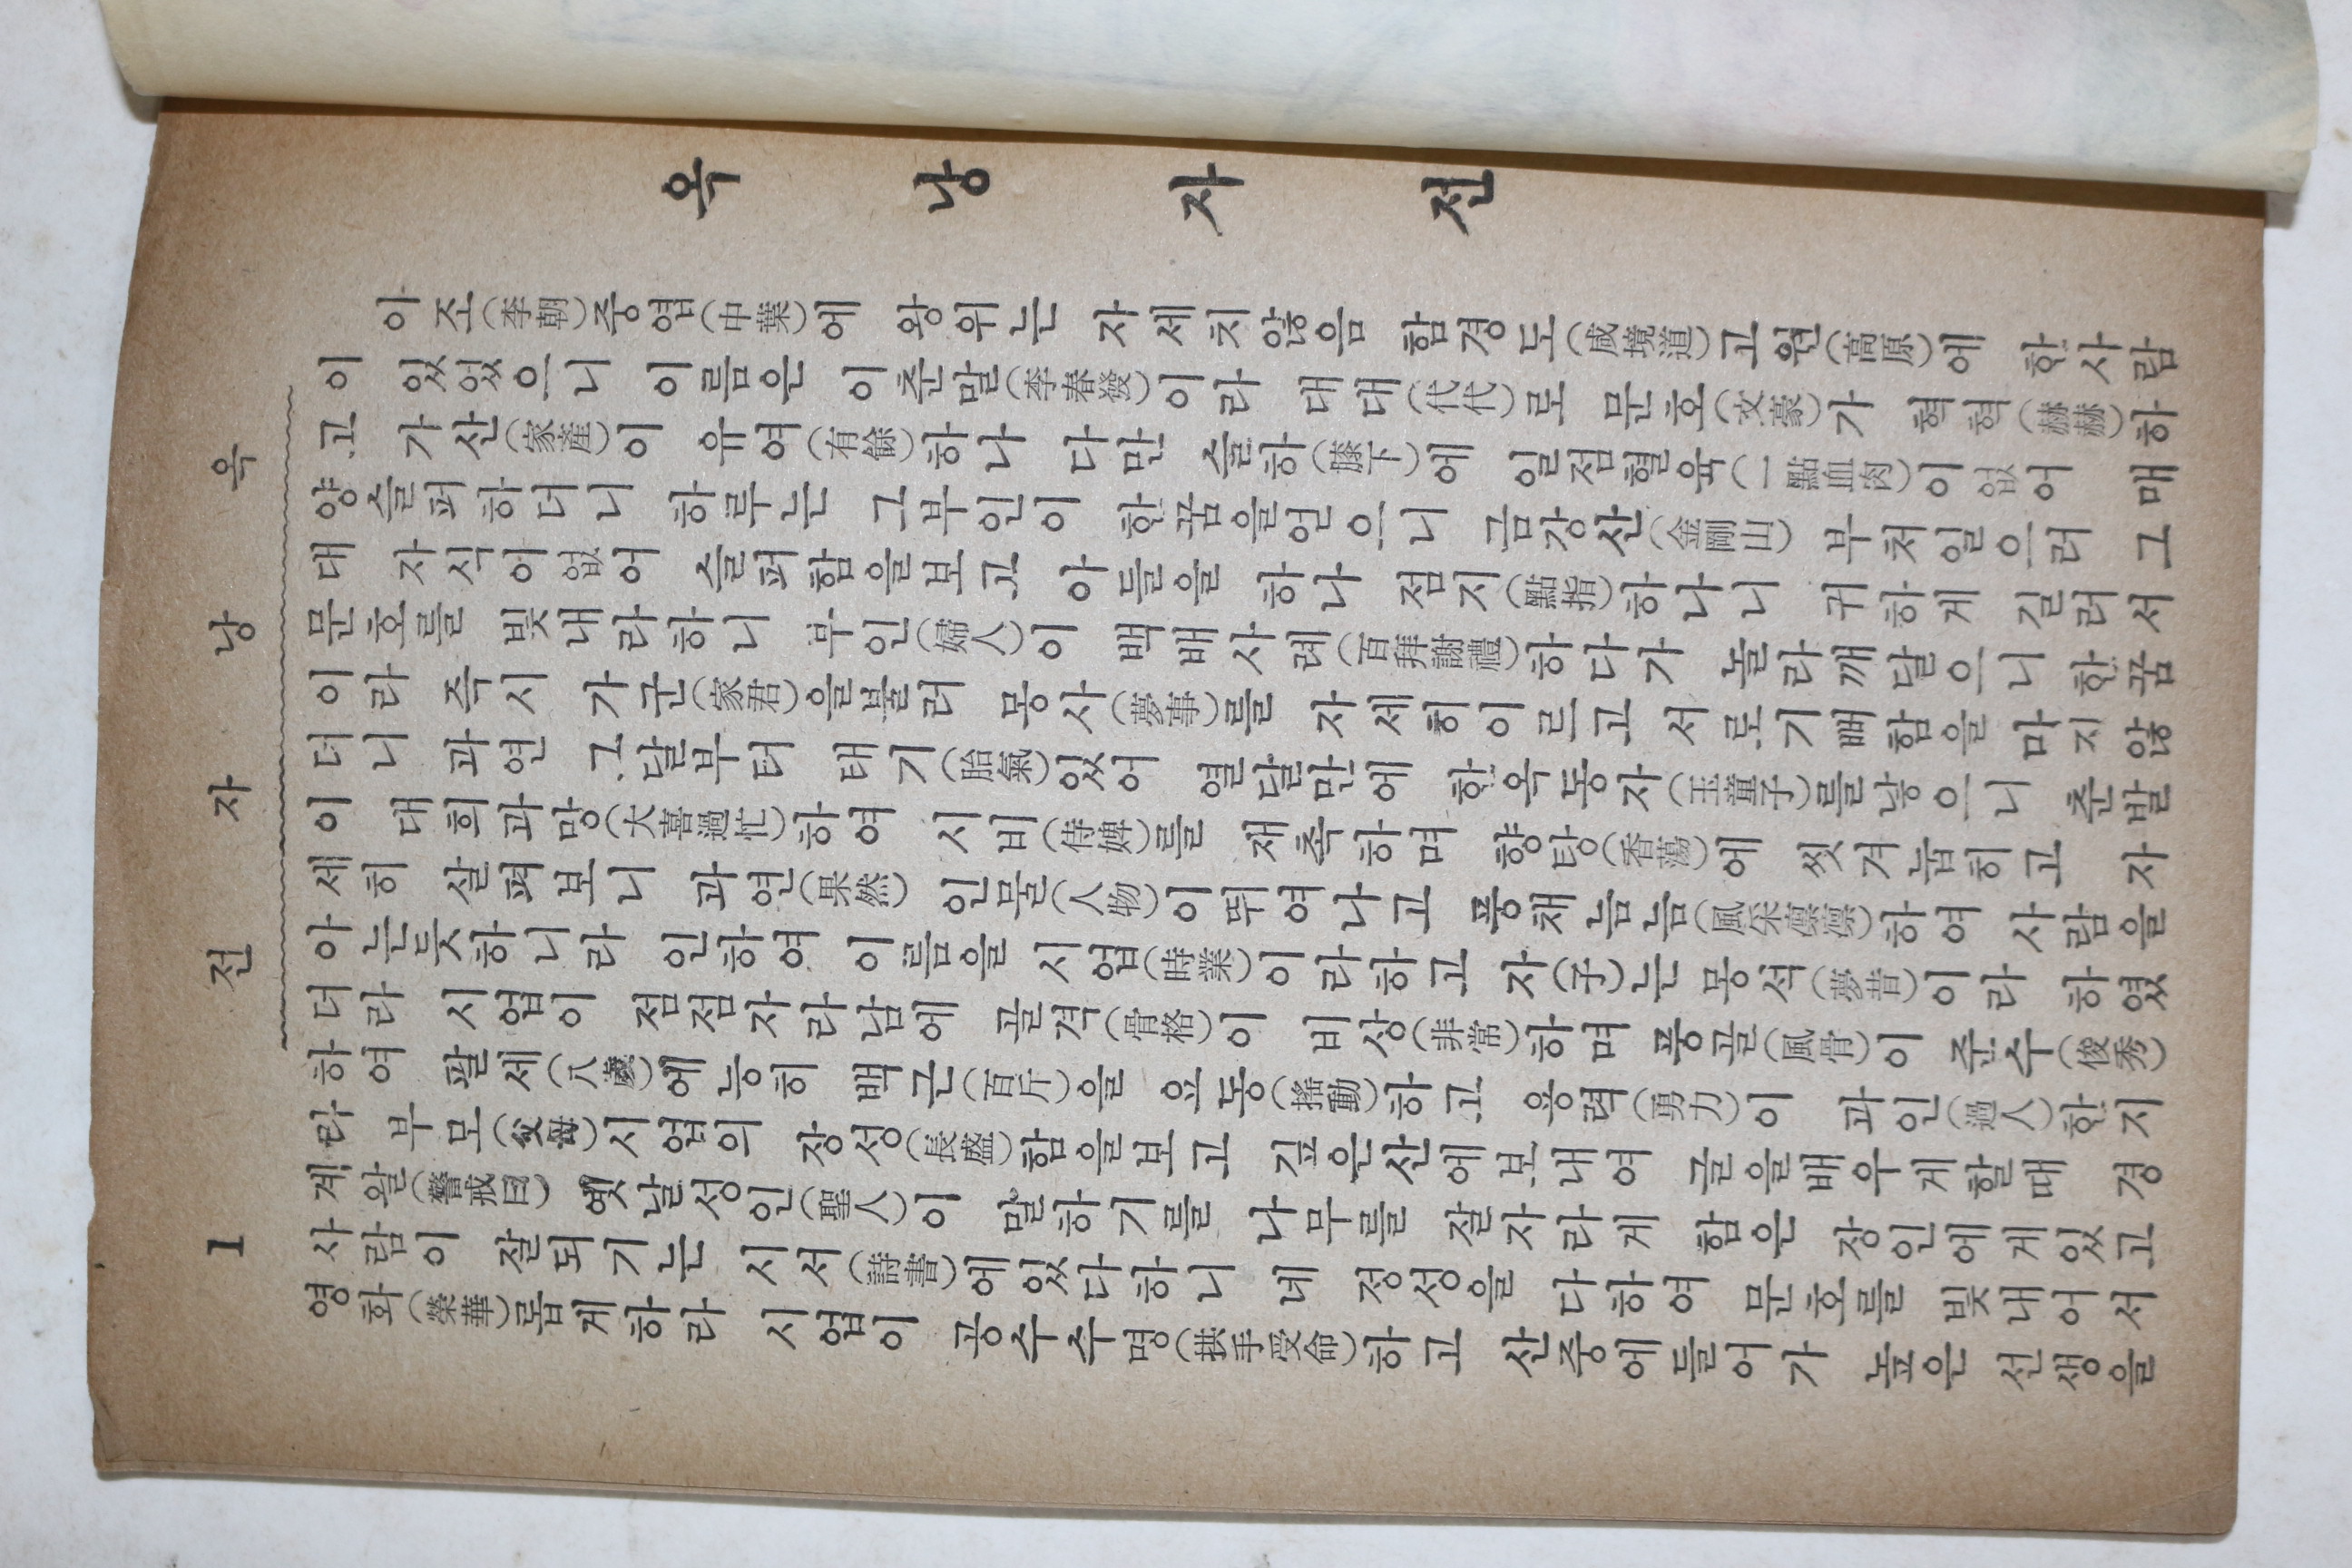 옥낭자전
1
옥낭자전
아조(李朝)중엽(中葉)에 왕위는 자세치않음 함경도(咸境道)고원(高原)에 한사람
이 있었으니 이름은 이춘말(李春發)이라 대대(代代)로 문호(文豪)가 혁혁(赫赫)하
고 가산(家產)이 유여(有餘)하나 다만 슬하(膝下)에 일점혈육(一點血肉)이없어 매
양슬퍼하더니 하루는 그부인이 한꿈을얻으니 금강산(金剛山) 부처일으러 그
대 자식이없어 슬퍼함을보고 아들을 하나 점지(點指)하나니 귀하게 길러서
문호를 빛내라하니 부인(婦人)이 백배사례(百拜謝禮)하다가 놀라깨달으니 한꿈
이라 즉시 가군(家君)을불러 몽사(夢事)를 자세히이르고 서로기뻐함을 마지않
더니 과연 그달부터 태기(胎氣)있어 열달만에 한옥동자(玉童子)를낳으니 춘발
이 대희과망(大喜過忙)하여 시비(侍婢)를 재촉하며 향탕(香蕩)에 씻겨눕히고 자
세히 살펴보니 과연(果然) 인물(人物)이뛰여나고 풍채늠늠(風采凛凛)하여 사람을
아는듯하니라 인하여 이름을 시업(時業)이라하고 자(子)는몽석(夢昔)이라 하였
더라 시업이 점점자라남에 골격(骨格)이 비상(非常)하며 풍골(風骨)이 준수(俊秀)
하여 팔세(八歲)에능히 백근(百斤)을 요동(搖動)하고 용력(勇力)이 과인(過人)한지
라 부모(父母)시업의 장성(長盛)함을보고 깊은산에보내여 글을배우게할때 경
계왈(警戒曰) 옛날성인(聖人)이 말하기를 나무를 잘자라게 함은 장인에게있고
사람이 잘되기는 시서(詩書)에있다하니 네 정성을 다하여 문호를 빛내어서
영화(榮華)롭게하라 시업이 공수수명(拱手受命)하고 산중에들어가 높은 선생을